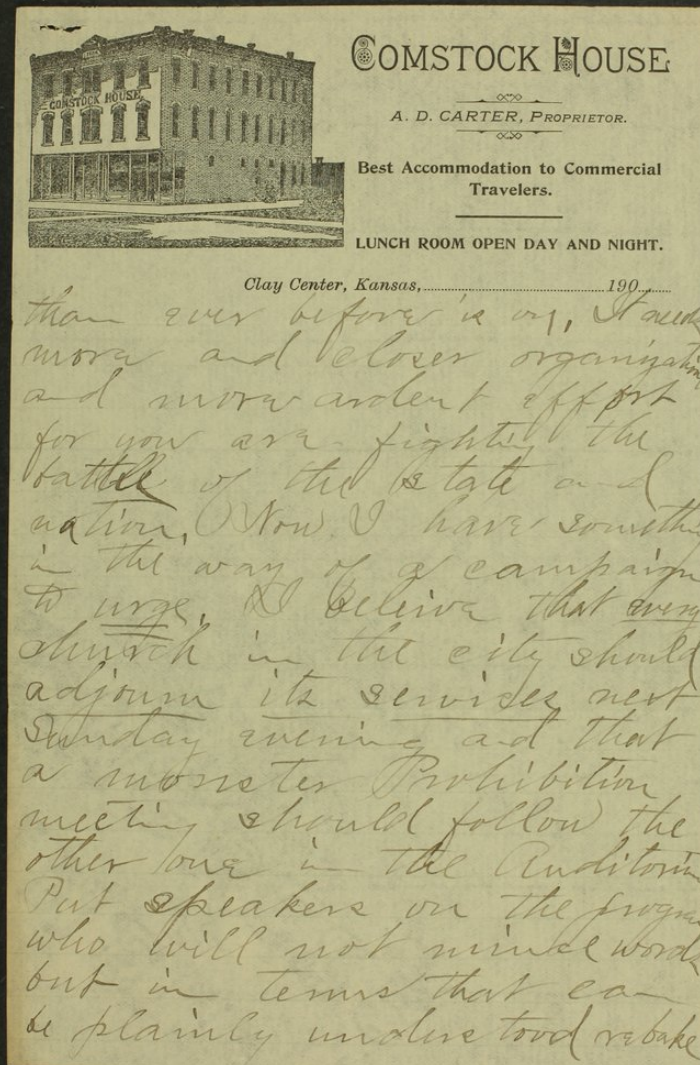 COMSTOCK HOUSE.
COMSTOCK HOUSE
A. D. CARTER, PROPRIETOR.
Best Accommodation to Commercial
Travelers.
LUNCH ROOM OPEN DAY AND NIGHT.
Clay Center, Kansas,..............................190......
than ever before is on, It needs
more and closer organization
and more ardent effort
for you are fighting the
battle of the state and
nation. Now I have somethi
in the way of a campaign
to urge. I beleive that every
church in the city should
adjourn its services next
Sunday evening and that
a monster Prohibition
meeting should follow the
other one in the Auditoriu
Put speakers on the progra
who will not mince words
but in terms that can
be plainly understood rebuke